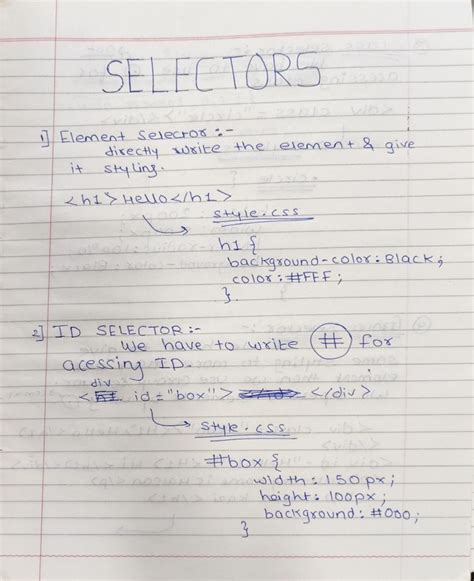 SELECTORS
1] Element selector :-
directly write the element & give
it styling.
<h1>Hello</h1>
style.css
h1 {
background-color: Black;
color: #FFF;
}.
2] ID SELECTOR :-
We have to write # for
acessing ID.
div
< id="box"> </div>
style.css
#box {
width: 150px;
height: 100px;
background: #000;
}